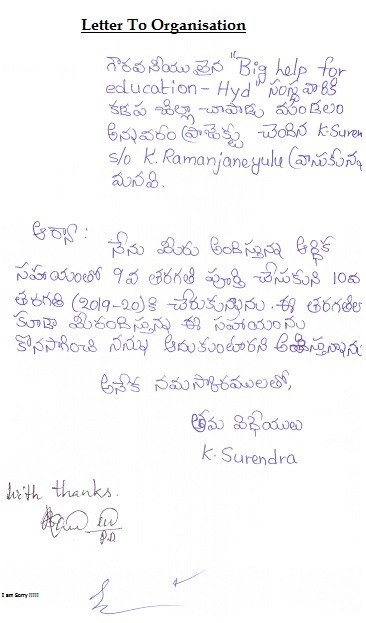 Letter To Organisation
గౌరవనీయులైన "Big help for
education - Hyd" సంస్థ వారికి
కడప జిల్లా చాపాడు మండలం
అన్నవరం ప్రాజెక్టు చెందిన K. Suren
s/o K. Ramanjaneyulu వ్రాసుకున్న
మనవి.
ఆర్యా :
నేను మీరు అందిస్తున్న ఆర్థిక
సహాయంతో 9వ తరగతి పూర్తి చేసుకుని 10వ
తరగతి (2019-20)కి చేరుకున్నాను. ఈ తరగతిలో
కూడా మీరందిస్తున్న ఈ సహాయంను
కొనసాగించి నన్ను ఆదుకుంటారని ఆశిస్తున్నాను
అనేక నమస్కారములతో,
తమ విధేయులు
K. Surendra
With thanks.
P.D
I am Sorry !!!!!